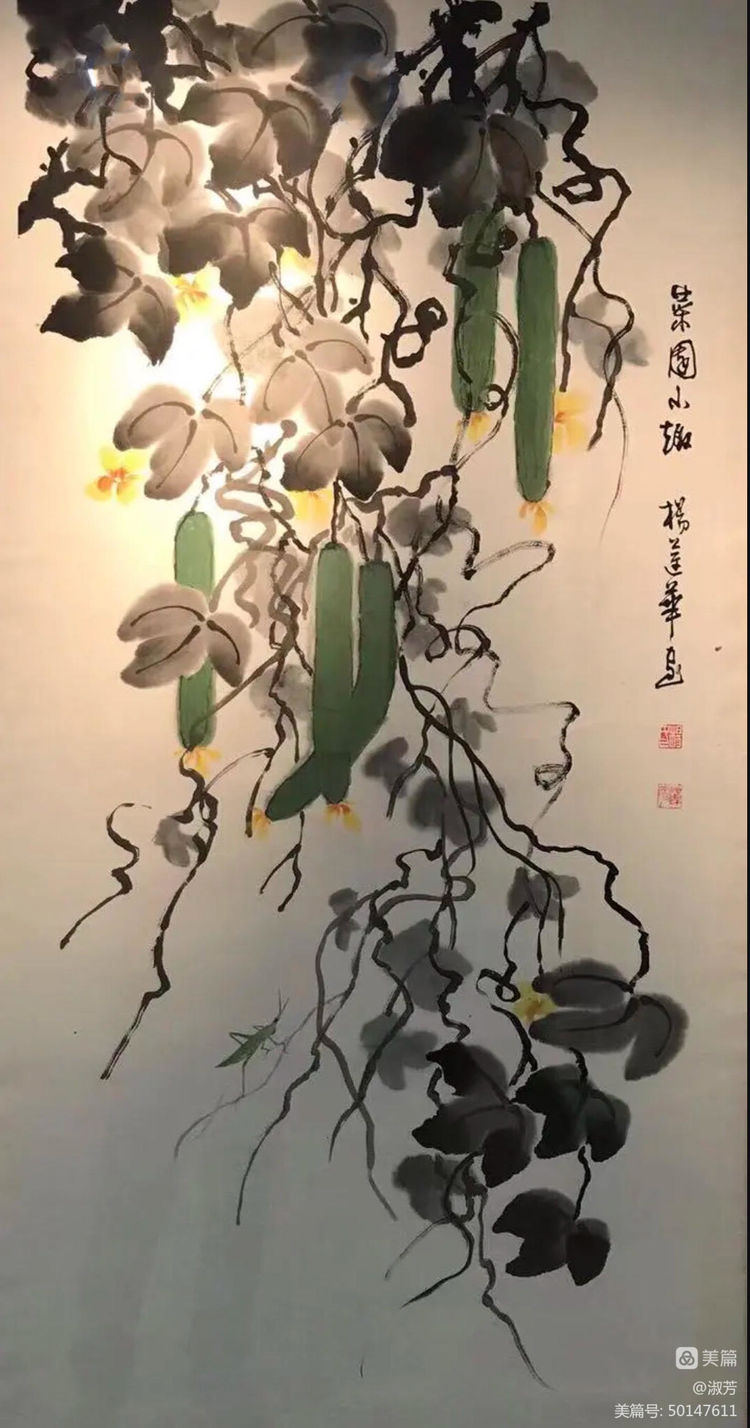 菜園小趣
楊蓮華畫
美篇
@淑芳
美篇号: 50147611